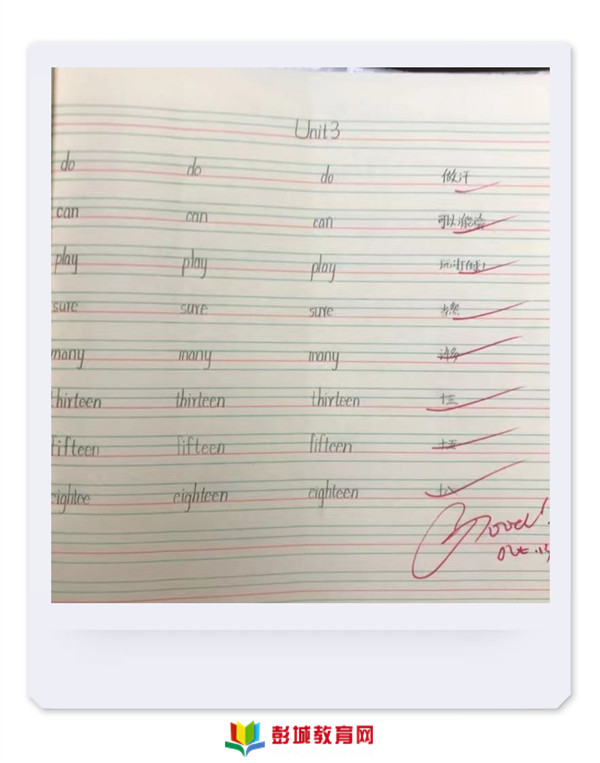 Unit 3
do do do 做
can can can 可以能会
play play play 玩
sure sure sure 当然
many many many 许多
hirteen thirteen thirteen 十三
fifteen fifteen fifteen 十五
eightee eighteen eighteen 十八
Good!
彭城教育网